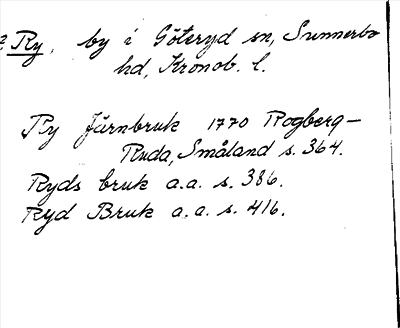 Ry, by i Göteryd sn, Sunnerbo
hd, Kronob. l.
Ry Järnbruk 1770 Rogberg-
Ruda, Småland s. 364.
Ryds bruk a.a. s. 386.
Ryd Bruk a.a. s. 416.